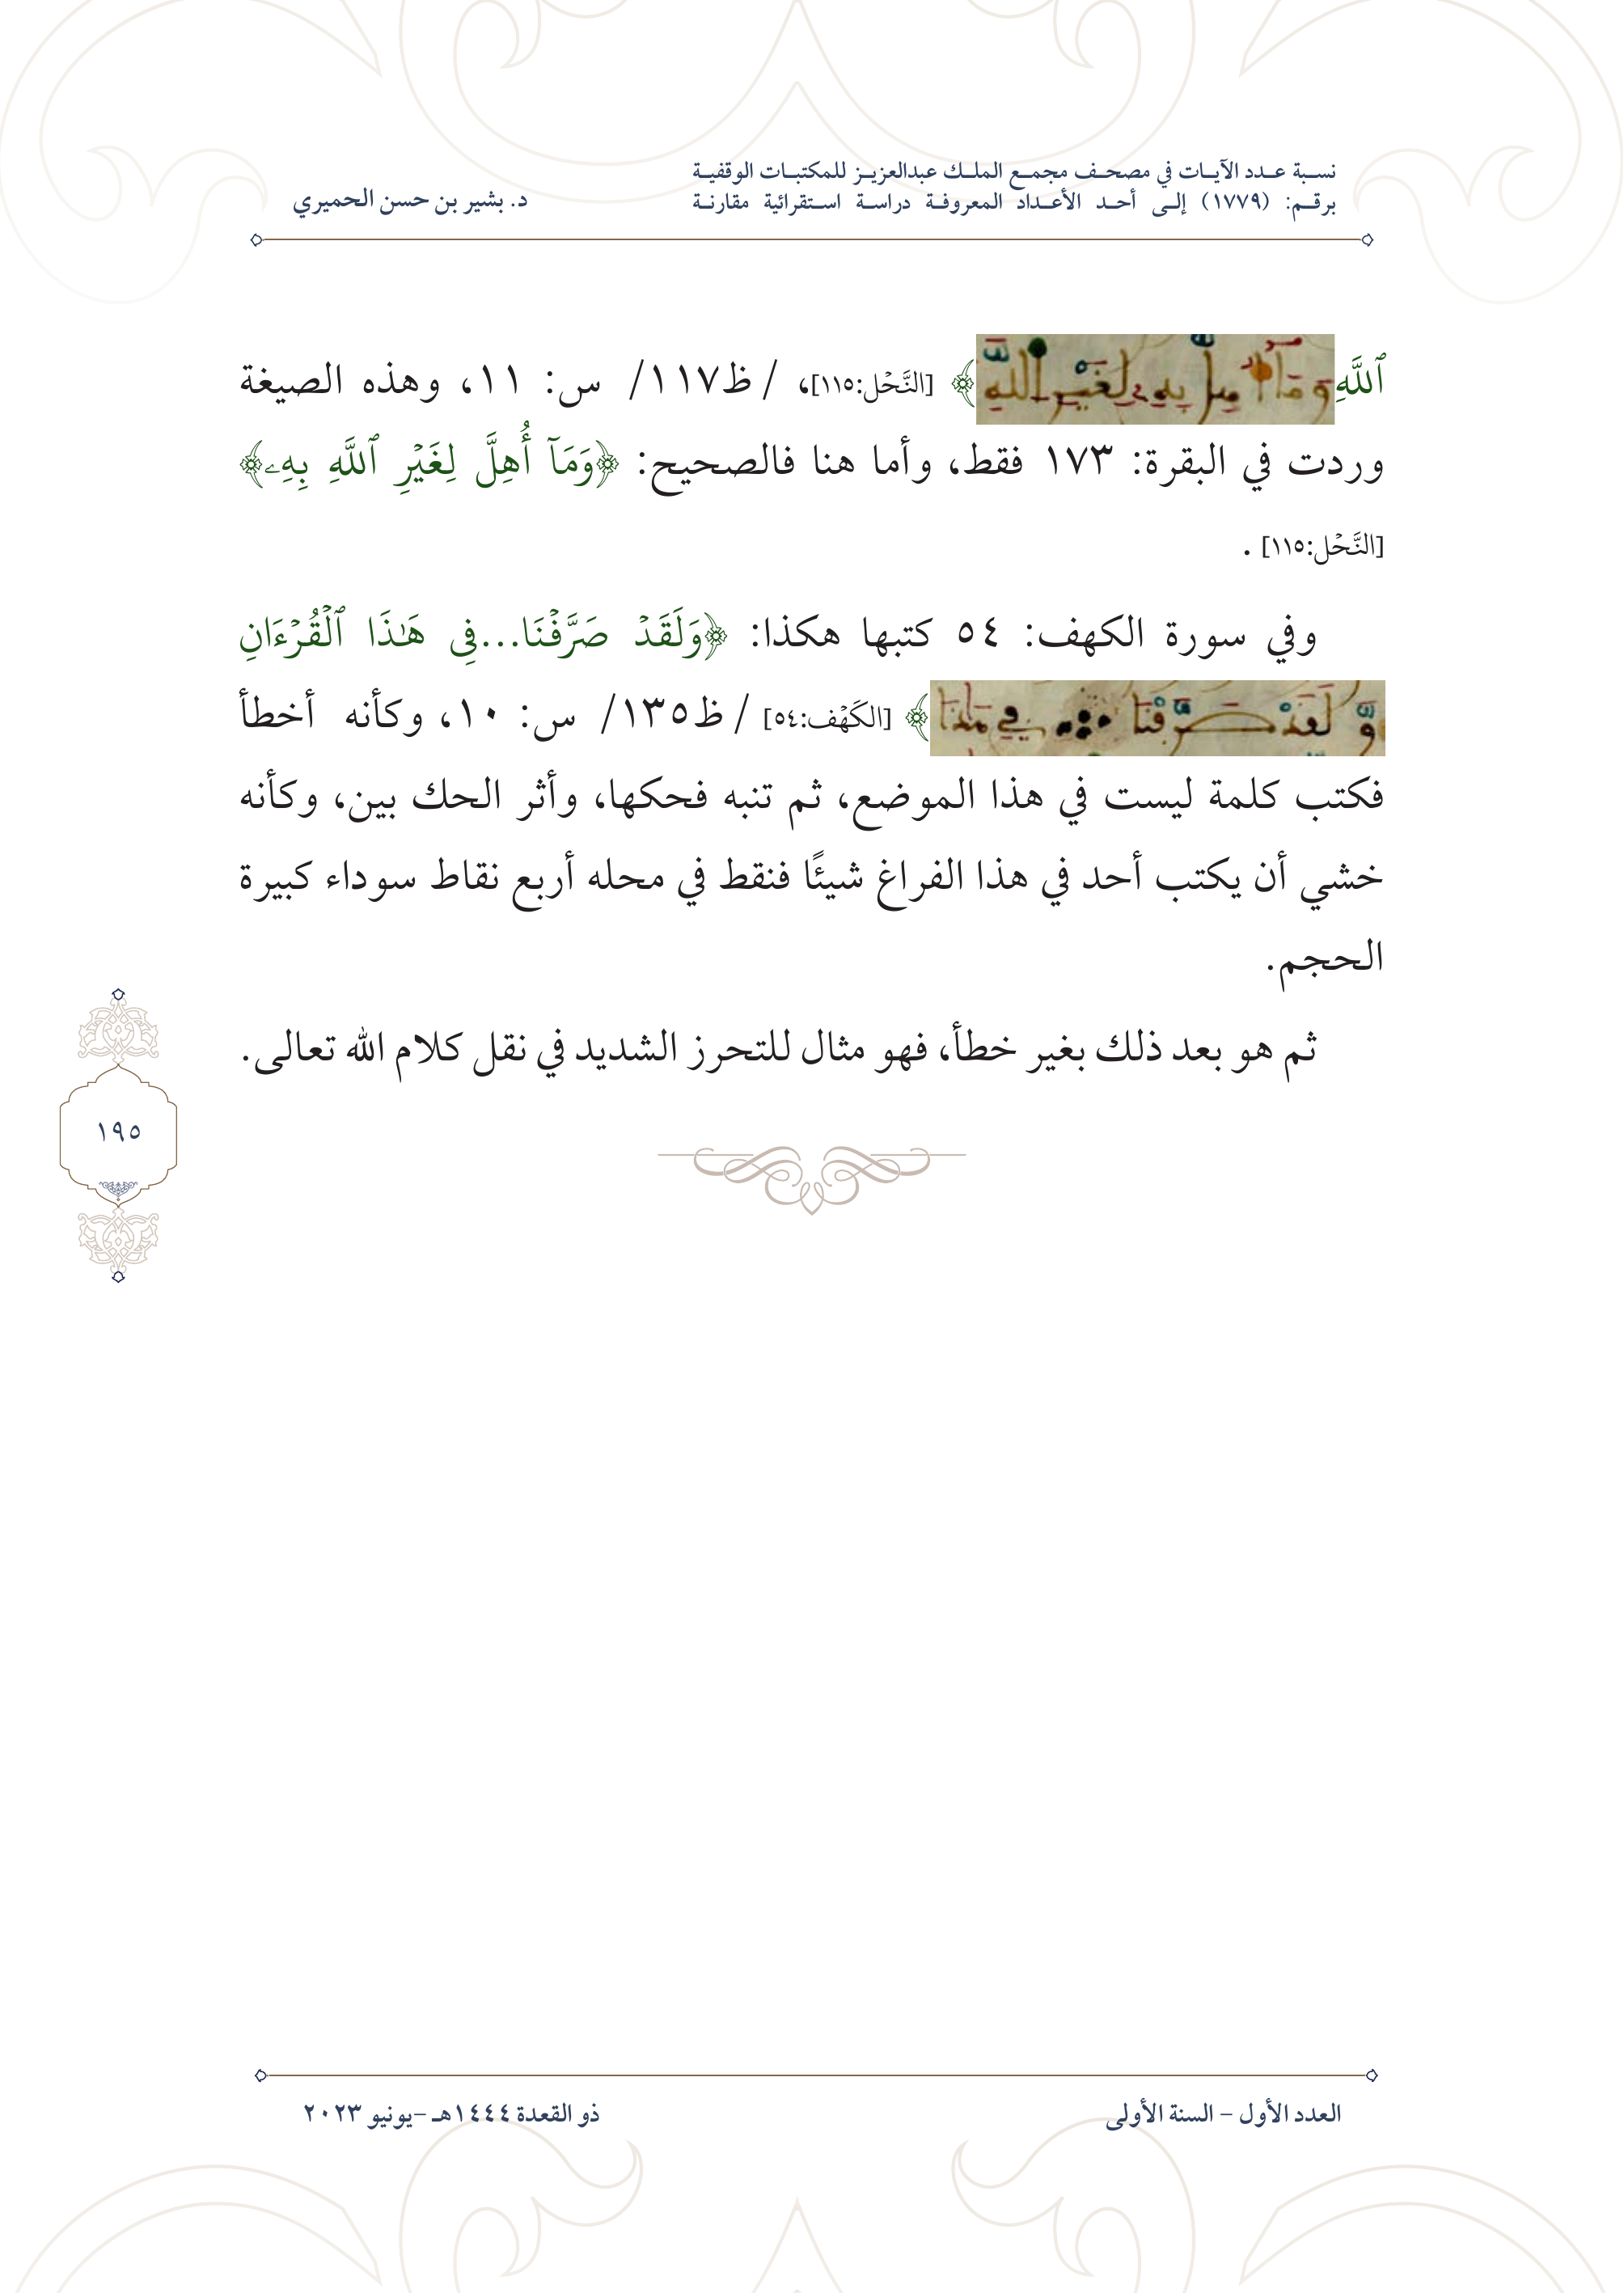 نسبة عدد الآيات في مصحف مجمع الملك عبدالعزيز للمكتبات الوقفية
برقم: (١٧٧٩) إلى أحد الأعداد المعروفة دراسة استقرائية مقارنة
د. بشير بن حسن الحميري
ٱللَّهِ وَمَا أهل بِهِ لِغَيْرِ اللَّهِ﴾ [النَّحۡل:١١٥]، /ظ١١٧/ س: ١١، وهذه الصيغة
وردت في البقرة: ١٧٣ فقط، وأما هنا فالصحيح: ﴿وَمَآ أُهِلَّ لِغَيۡرِ ٱللَّهِ بِهِۦ﴾
[النَّحۡل:١١٥] .
وفي سورة الكهف: ٥٤ كتبها هكذا: ﴿وَلَقَدۡ صَرَّفۡنَا...فِى هَٰذَا ٱلۡقُرۡءَانِ
وَلَقَدْ صَرَّفْنَا في هَٰذَا﴾ [الكَهۡف:٥٤] /ظ١٣٥/ س: ١٠، وكأنه أخطأ
فكتب كلمة ليست في هذا الموضع، ثم تنبه فحكها، وأثر الحك بين، وكأنه
خشي أن يكتب أحد في هذا الفراغ شيئًا فنقط في محله أربع نقاط سوداء كبيرة
الحجم.
ثم هو بعد ذلك بغير خطأ، فهو مثال للتحرز الشديد في نقل كلام الله تعالى.
١٩٥
العدد الأول – السنة الأولى
ذو القعدة ١٤٤٤هـ –يونيو ٢٠٢٣